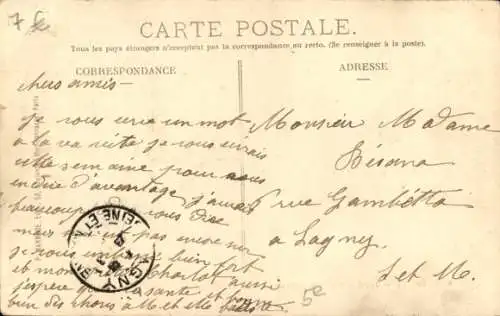 CARTE POSTALE.
Tous les pays étrangers n'acceptent pas la correspondance au recto. (Se renseigner à la poste).
CORRESPONDANCE
ADRESSE
chers amis-
je vous écris un mot
a la va vite je vous écrirais
cette semaine pour vous
en dire d'avantage j'aurais
beaucoup vous dire
mais pas encore
je vous embrasse bien fort
et mon aussi
j'espère que la santé et bonne
bien des choses à M. et Mme
Monsieur Madame
Bésana
5 rue Gambetta
a Lagny.
S. et M.
LAGNY
SEINE ET M
5e